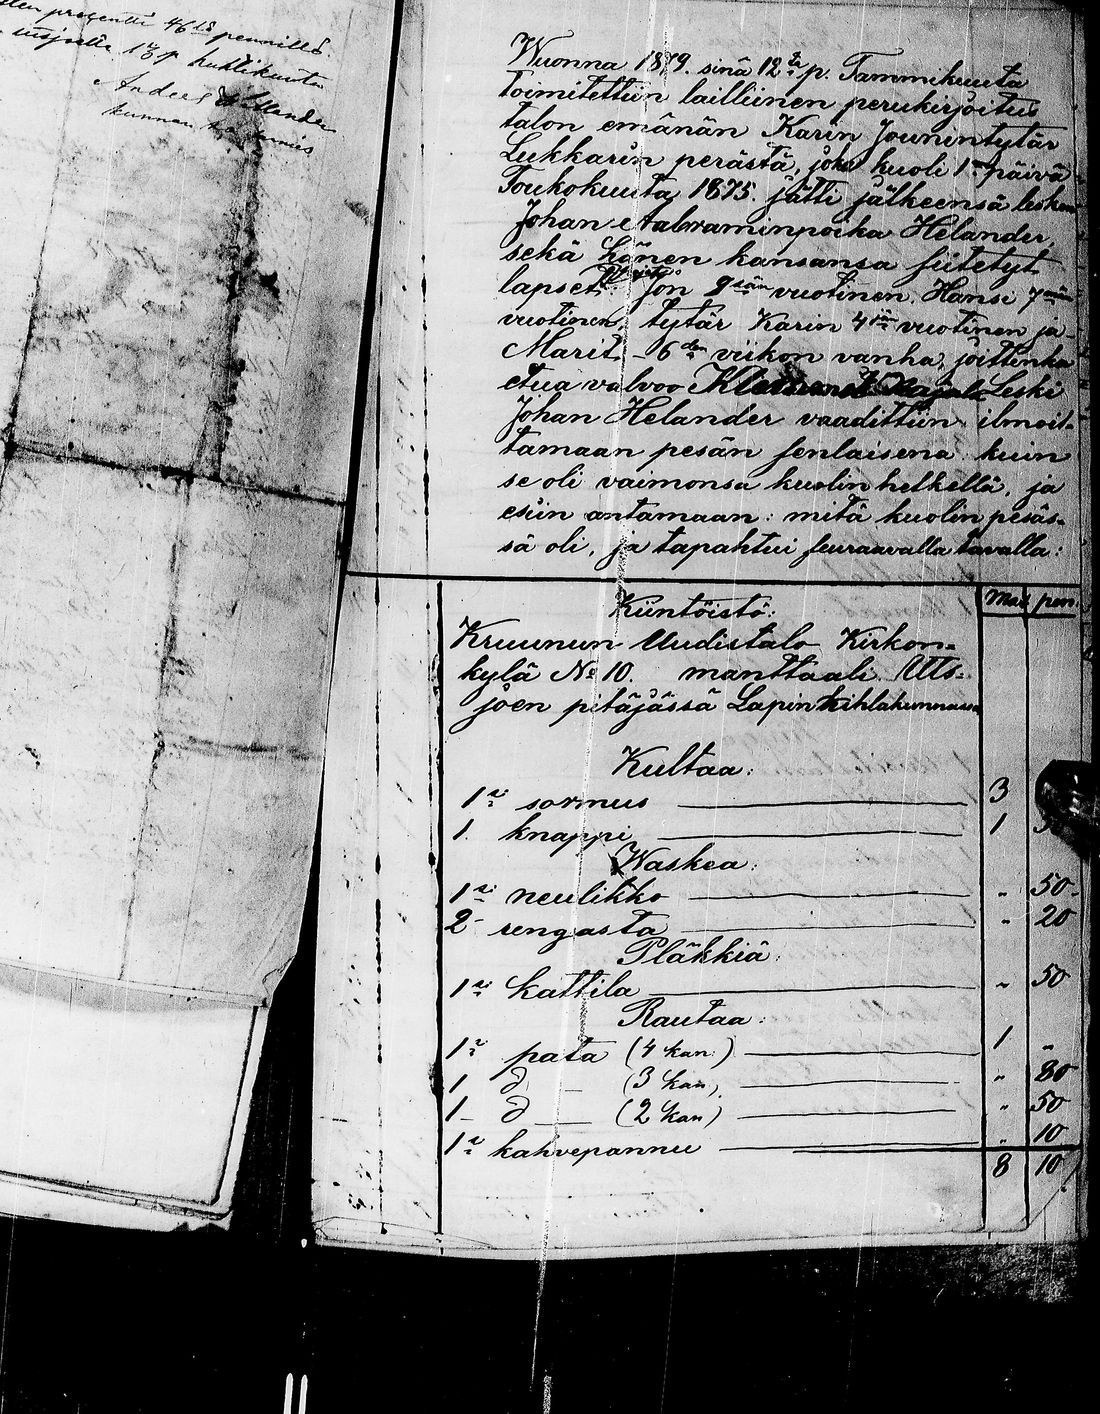 prozentti 46 ls pennillä.
13 p huhtikuuta
Anders Helander
kunnan
Wuonna 1879. sinä 12 ta p. Tammikuuta
toimitettiin laillinen perukirjoitus
talon emänän Karin Jounintytär
Lukkarin perästä, joka kuoli 1 nä päivä
Toukokuuta 1875. jätti jälkeensä lesken
Johan Aabraminpoika Helander,
sekä hänen kansansa siitetyt
lapset: Jon 9 sän vuotinen. Hansi 7 män
vuotinen, tytär Karin 4 jän vuotinen ja
Marit – 6 den viikon vanha, joittenka
etua valvoo Leski
Johan Helander vaadittiin ilmoit-
tamaan pesän senlaisena kuin
se oli vaimonsa kuolin hetkellä, ja
esiin antamaan: mitä kuolin pesäs-
sä oli, ja tapahtui seuraavalla tavalla:
Kiintöistö: Mar pen.
Kruunun Uudistalo Kirkon-
kylä No 10. manttaali Uts-
joen pitäjässä Lapin kihlakunnassa
Kultaa:
1 si sormus 3
1. knappi 1
Waskea:
1 si neulikko " 50
2 rengasta " 20
Pläkkiä:
1 si kattila " 50
Rautaa:
1 si pata (4 kan:) 1 "
1 d (3 kan) " 80
1 d (2 kan) " 50
1 si kahvepannu " 10
8 10